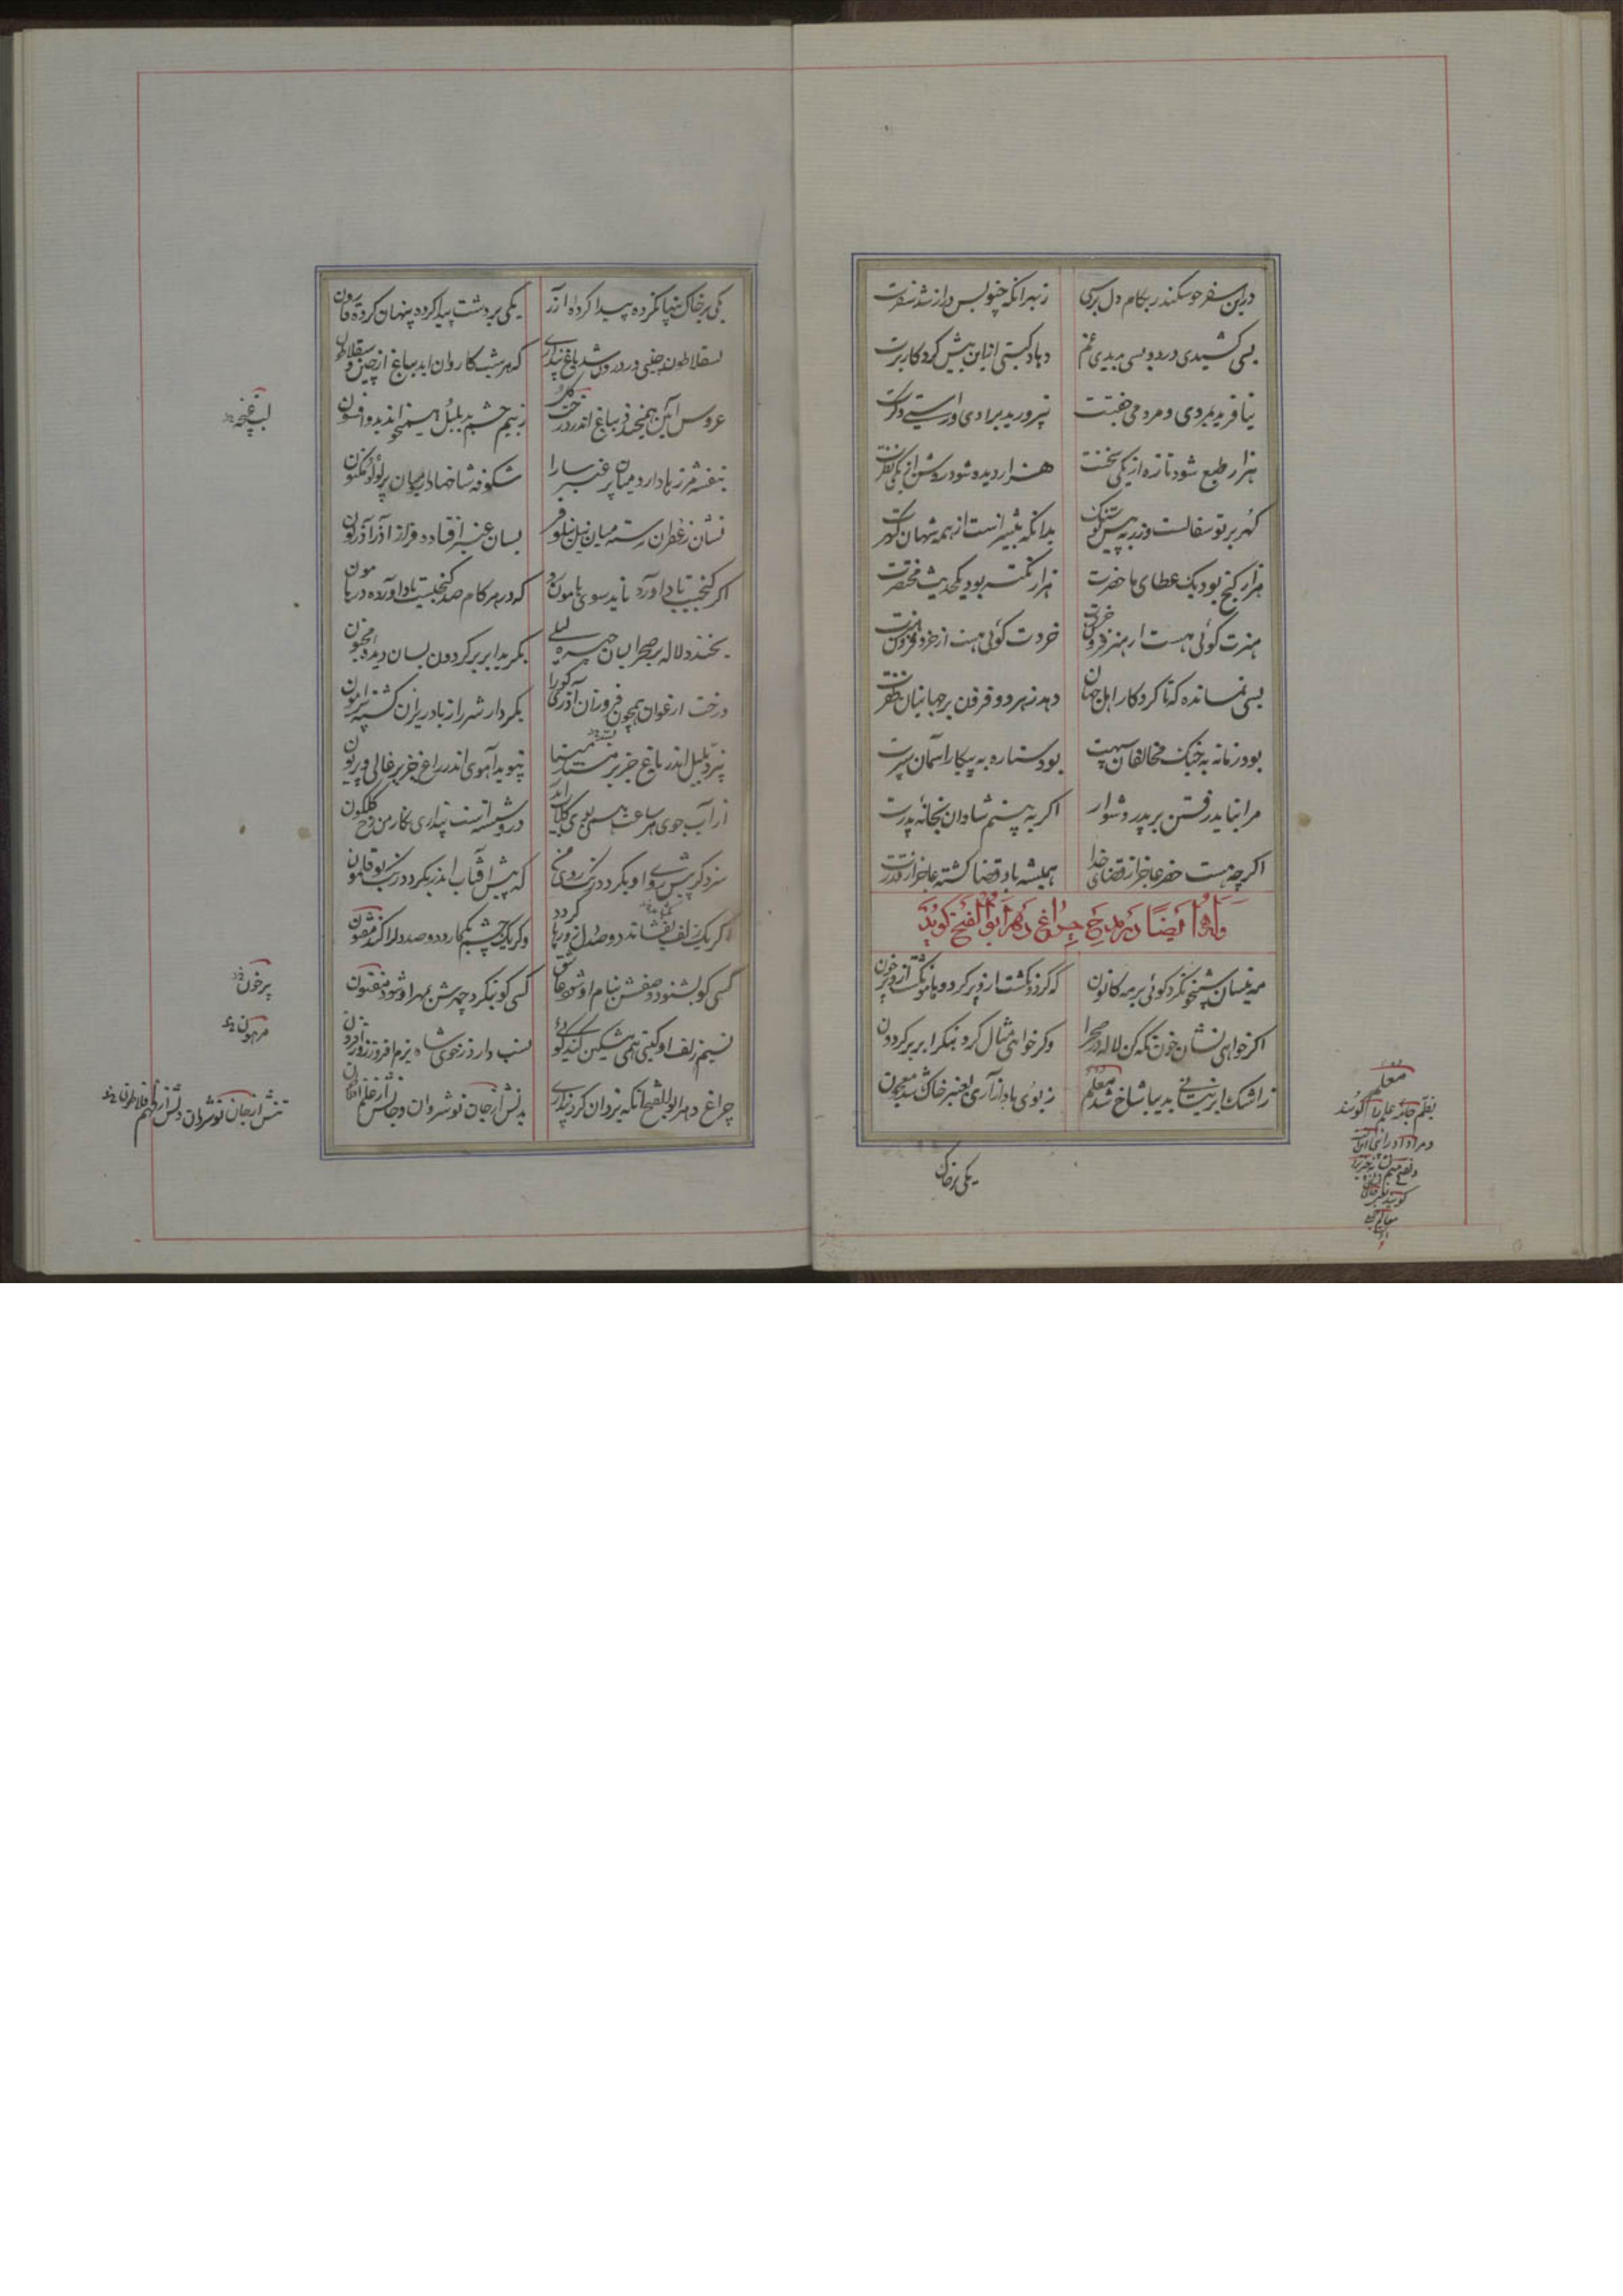 درین سفر چو سکندر بکام دل برسی زبهرانکه چنو بس دراز شد سفرت
بسی کشیدی درد و بسی بدیدی غم دهاد کیتی ازاین بیش کردکار برت
نیافرید بمردی و مردمی جفتت نپرورید برادی و راستی دکرت
هزار طبع شود تازه از یکی سخنت هزار دیده شود روشن از یکی نظرت
کهر بر تو سفالست و زر به پیش تو سنک بدانکه بیشتر است از همه شهان کهرت
هزار کنج بود یک عطای ما حضرت هزار نکته بود یکحدیث مختصرت
هنرت کوئی هست از هنر فزون خردت خردت کوئی هست از خرد فزون هنرت
بسی نمانده که تا کردکار اهل جهان دهد ز هر دو قرون بر جهانیان ظفرت
بود زمانه به جنک مخالفان سپهت بود ستاره به پیکار آسمان سپرت
مرا نباید رفتن بر پدر دشوار اکر به بینم شادان بخانه پدرت
اکرچه هست حضر عاجز از قضای خدا همیشه باد قضا کشته عاجز از قدرت
وله ایضا در مدح چراغ دهر ابوالفتح کوید
مه نیسان شبیخون کرد کوئی بر مه کانون که کردون کشت ازو پر کرد و هامون کشت ازو پر خون
اکر خواهی نشان خون نکه کن لاله در صحرا وکر خواهی مثال کرد بنکر ابر بر کردون
ز اشک ابر نیسانی بدیبا شاخ شد معلم ز بوی باد آزاری بعنبر خاک شد معجون
یکی بر خاک
معلم
بفتح جامه علم را کویند
یکی بر خاک پنهانکرده پیدا کرده ازر یکی بر دشت پیدا کرده پنهان کرده قارون
بسقلاطون چینی در درون شد باغ پنداری که هر شب کاروان اید بباغ از چین و سقلاطون
عروس آئین همیخندد بباغ اندر درخت کل ز بیم چشم بد بلبل همیخواند بدو افسون
بنفشه مرزها دارد میان پر عنبر سارا شکوفه شاخها دارد میان پر لؤلؤ مکنون
نشان زعفران رسته میان نیل نیلوفر بسان عنبر افتاده فراز آذر آذرکون
اکر کنجیست باد اورد ناید سوی هامون زو که در هر کام صد کنجیست باد آورده در هامون
بخندد لاله بر صحرا بسان چهره لیلی بکرید ابر بر کردون بسان دیده مجنون
درخت ارغوان همچون فروزان آذری کورا بکردار شرر از باد ریزان کشته پیرامون
نپرد بلبل اندر باغ جز بر بستد مینا نپوید آهوی اندر راغ جز بر غالی و پرنون
از آب جوی هر ساعت همی بوی کلاب اید درو شسته است پنداری نکار من رخ کلکون
سزد کر پیش روی او بکردد رنک روی من که پیش آفتاب اندر بکردد رنک بوقلمون
اکر یک زلف بفشاند دو صد دل زو رها کردد وکر یک چشم بکمارد دو صد دلرا کند مفتون
کسی کو بشنود وصفش بنام او شود عاشق کسی کو بنکرد چهرش بمهر او شود مفتون
نسیم زلف او کیتی همی مشکین کند کوئی نسب دارد ز خوی شاه بزم افروز روز افزون
چراغ دهر ابوالفتح آنکه یزدان کرد پنداری بدنش از جان نوشروان و جانش از علم افلاطون
لب غنچه
پرخون
مرهون
تنش از جان نوشروان دلش از فهم فلاطون